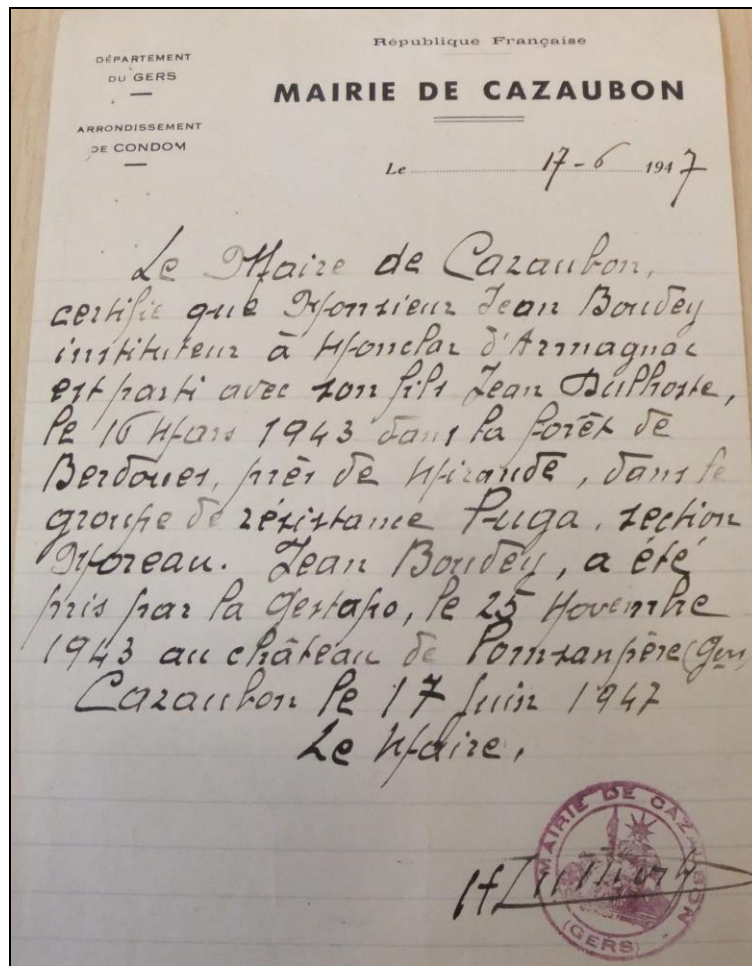 République Française
DÉPARTEMENT
DU GERS
MAIRIE DE CAZAUBON
ARRONDISSEMENT
DE CONDOM
Le 17-6 1947
Le Maire de Cazaubon,
certifie que Monsieur Jean Boudey
instituteur à Monclar d'Armagnac
est parti avec son fils Jean Dulhoste,
le 16 Mars 1943 dans la forêt de
Berdoues, près de Mirande, dans le
groupe de résistance Puga, section
Moreau. Jean Boudey, a été
pris par la Gestapo, le 25 Novembre
1943 au château de Pomsanpère (Gers)
Cazaubon le 17 Juin 1947
Le Maire,
MAIRIE DE CAZAUBON
(GERS)